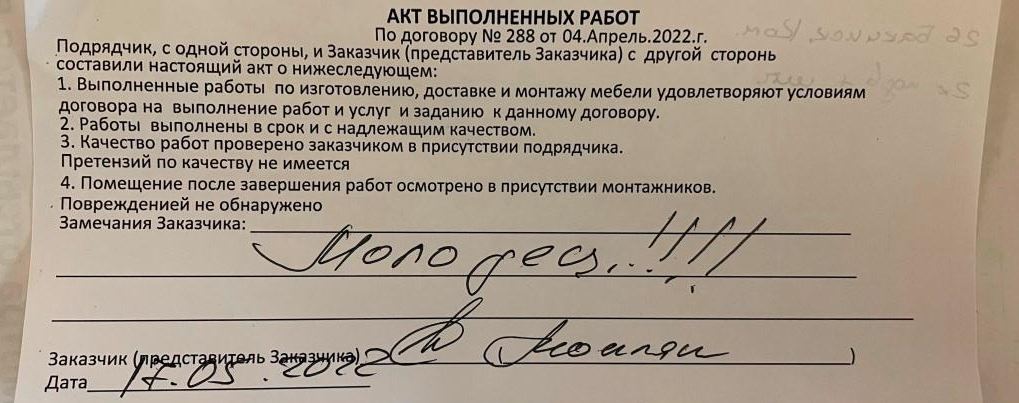 АКТ ВЫПОЛНЕННЫХ РАБОТ
По договору № 288 от 04.Апрель.2022.г.
Подрядчик, с одной стороны, и Заказчик (представитель Заказчика) с другой сторонь
составили настоящий акт о нижеследующем:
1. Выполненные работы по изготовлению, доставке и монтажу мебели удовлетворяют условиям
договора на выполнение работ и услуг и заданию к данному договору.
2. Работы выполнены в срок и с надлежащим качеством.
3. Качество работ проверено заказчиком в присутствии подрядчика.
Претензий по качеству не имеется
4. Помещение после завершения работ осмотрено в присутствии монтажников.
Повреждений не обнаружено
Замечания Заказчика:
Молодец..!!!!
Заказчик (представитель Заказчика)
Дата 17.05.2022